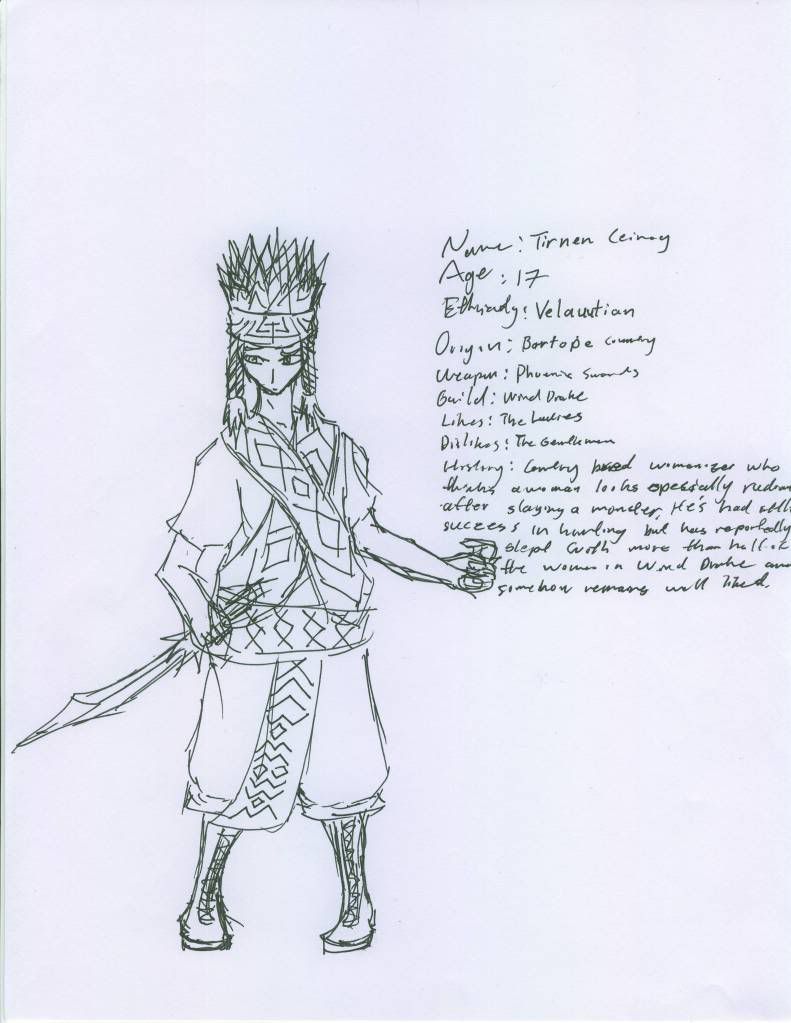 Name: Tirnen Ceinoy
Age: 17
Ethnicity: Velauntian
Origin: Bortope Country
Weapon: Phoenix Swords
Guild: Wind Drake
Likes: The Ladies
Dislikes: The Gentlemen
History: Country bred womanizer who
thinks a woman looks especially
after slaying a monster. He's had
success in hunting but has reportedly
slept with more than half of
the women in Wind Drake and
somehow remains well liked.